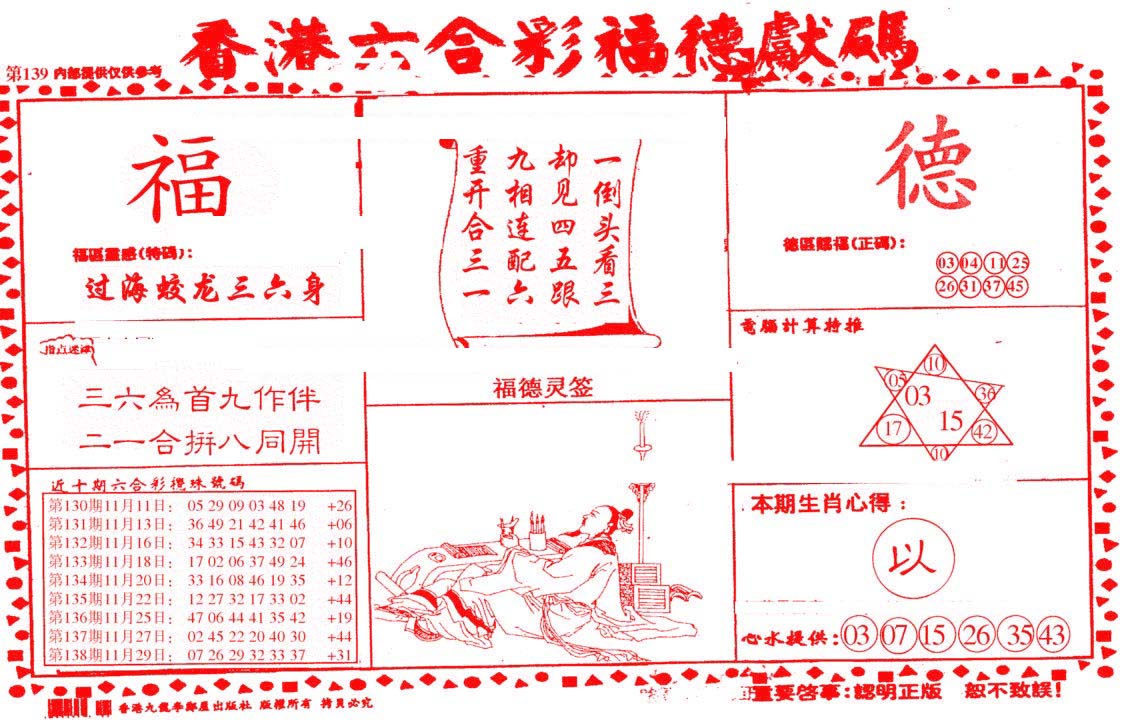 香港六合彩福德獻碼
第139 内部提供仅供参考
福
福區靈感(特碼):
过海蛟龙三六身
一倒头看三
却见四五跟
九相连配六
重开合三一
德
德區賜福(正碼):
03 04 11 25
26 31 37 45
指点迷津
三六為首九作伴
二一合拼八同開
福德灵签
電腦計算特推
10
05 03 36
17 15 42
10
近十期六合彩攪珠號碼
第130期11月11日: 05 29 09 03 48 19 +26
第131期11月13日: 36 49 21 42 41 46 +06
第132期11月16日: 34 33 15 43 32 07 +10
第133期11月18日: 17 02 06 37 49 24 +46
第134期11月20日: 33 16 08 46 19 35 +12
第135期11月22日: 12 27 32 17 33 02 +44
第136期11月25日: 47 06 44 41 35 42 +19
第137期11月27日: 02 45 22 20 40 30 +44
第138期11月29日: 07 26 29 32 33 37 +31
本期生肖心得:
以
心水提供: 03 07 15 26 35 43
重要啓事:認明正版 恕不致誤!
版權所有 拷貝必究